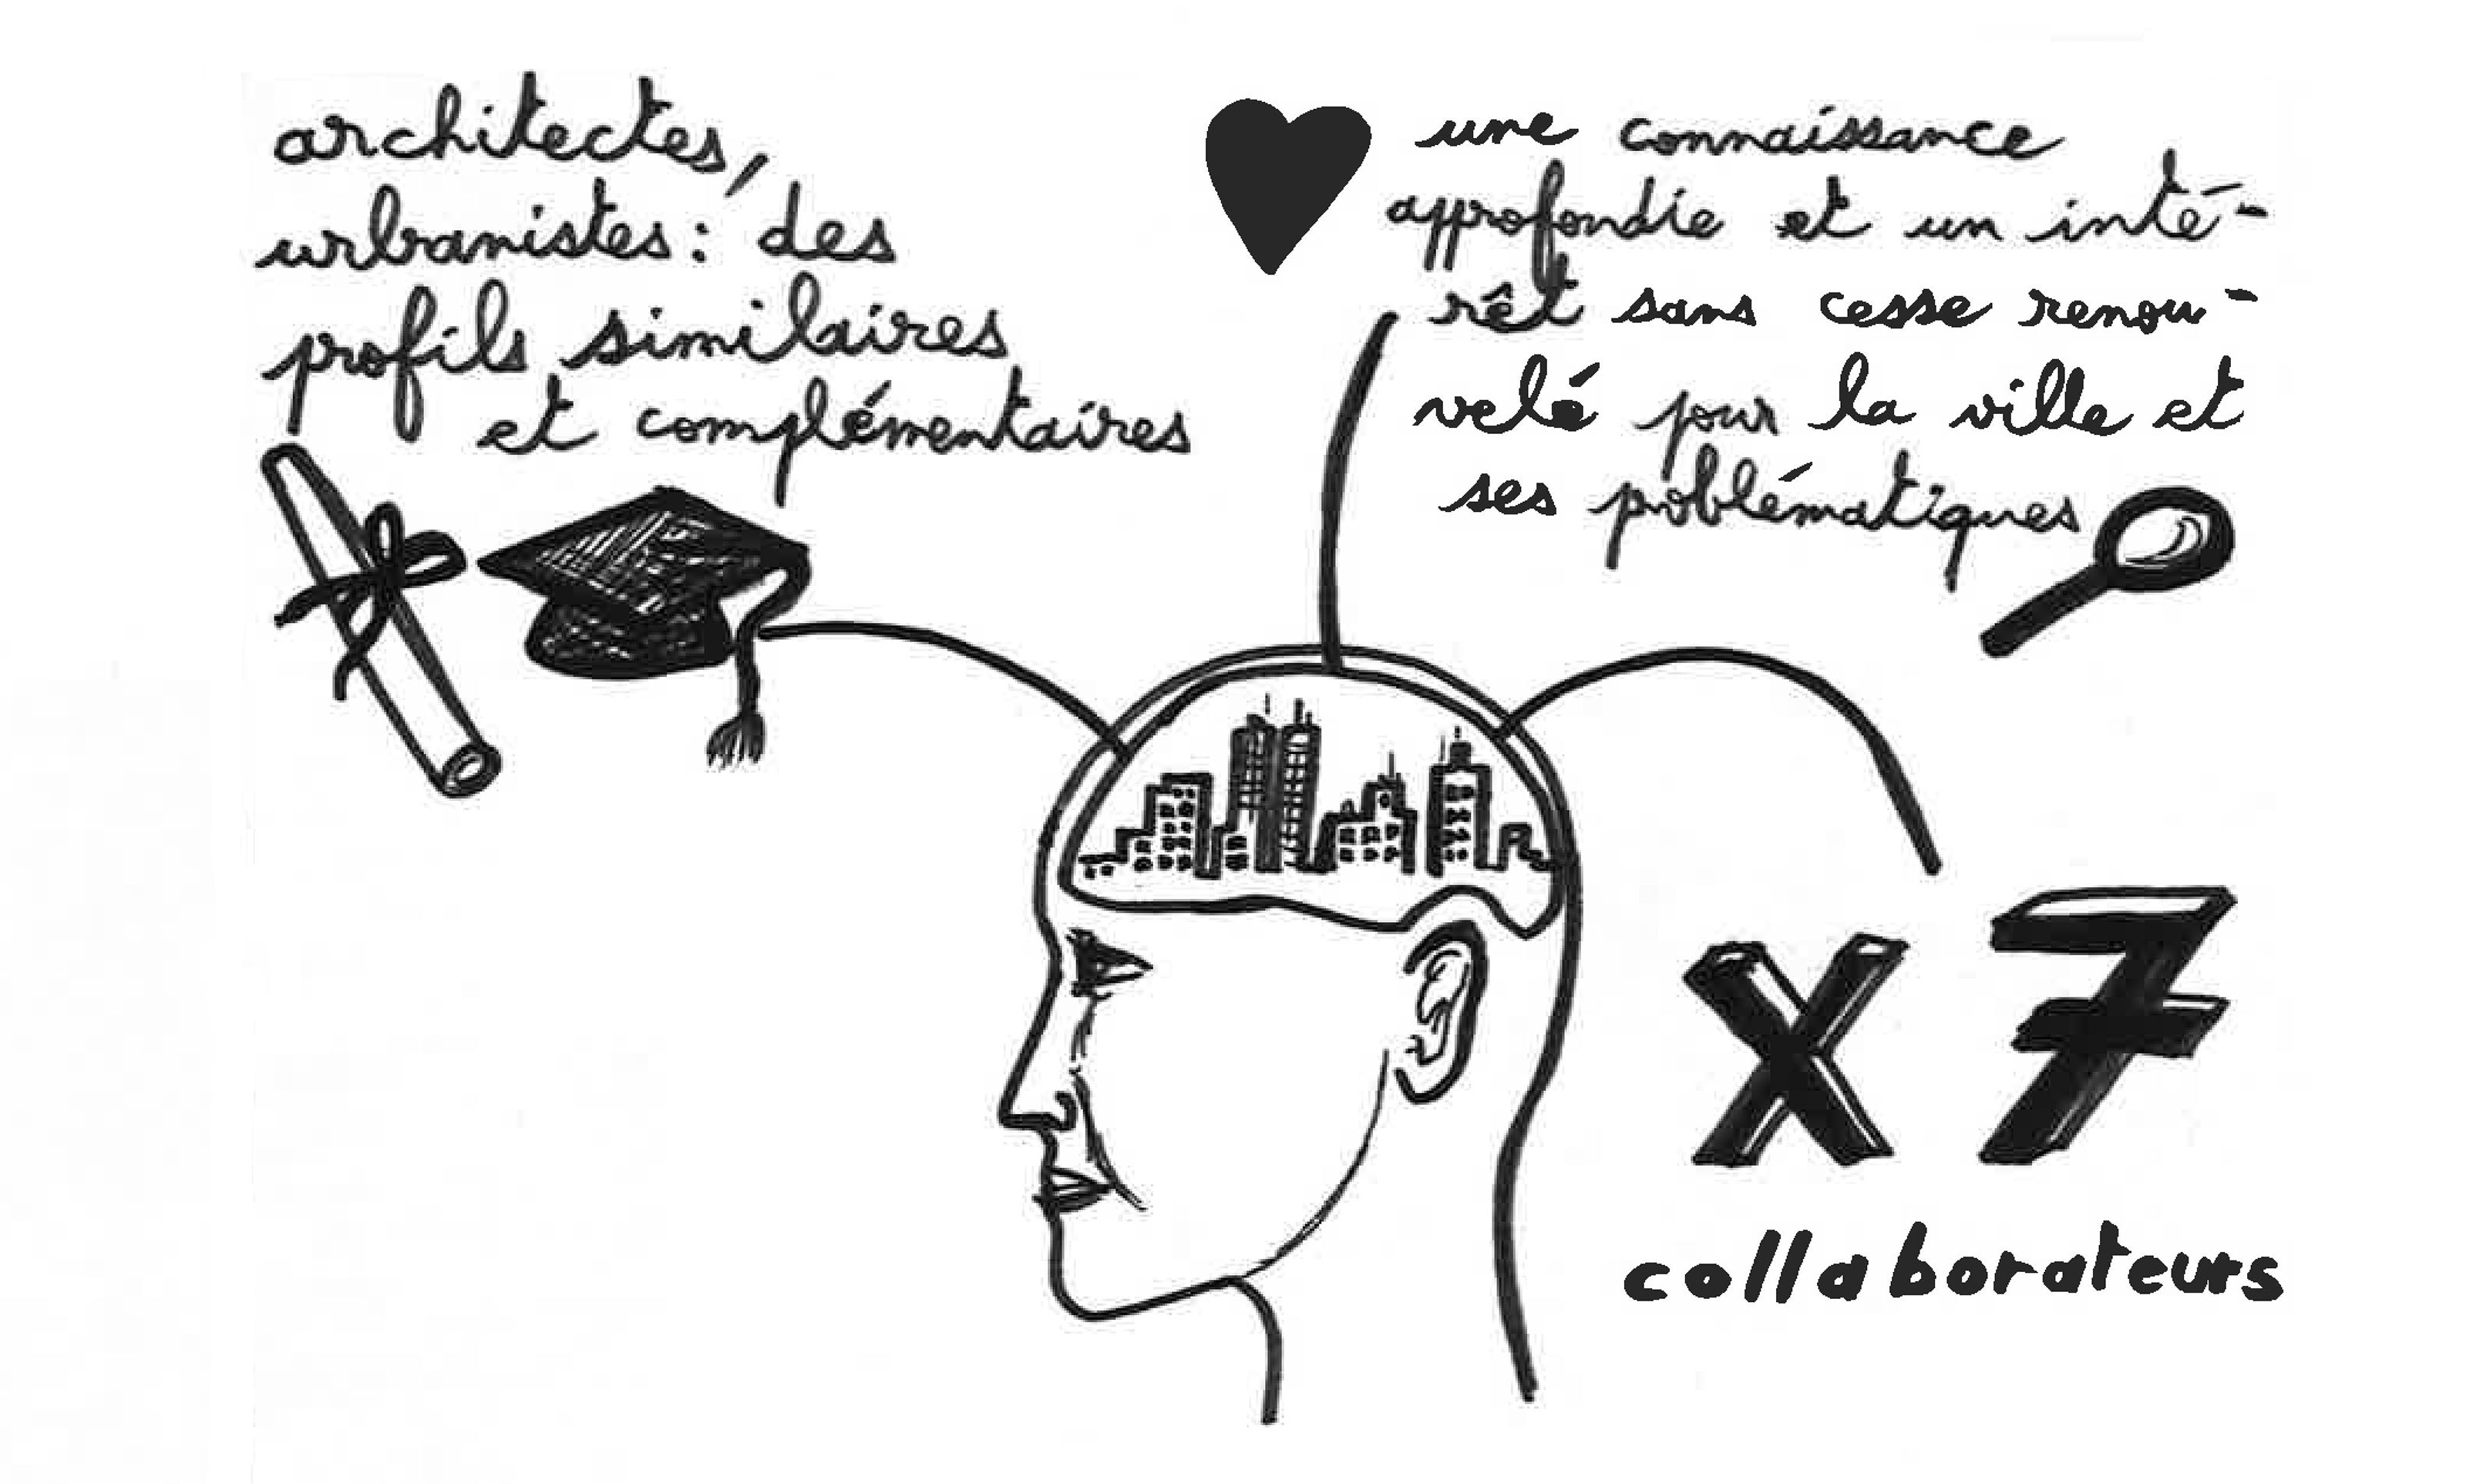 architectes,
urbanistes: des
profils similaires
et complémentaires
une connaissance
approfondie et un inté-
rêt sans cesse renou-
velé pour la ville et
ses problématiques
x 7
collaborateurs